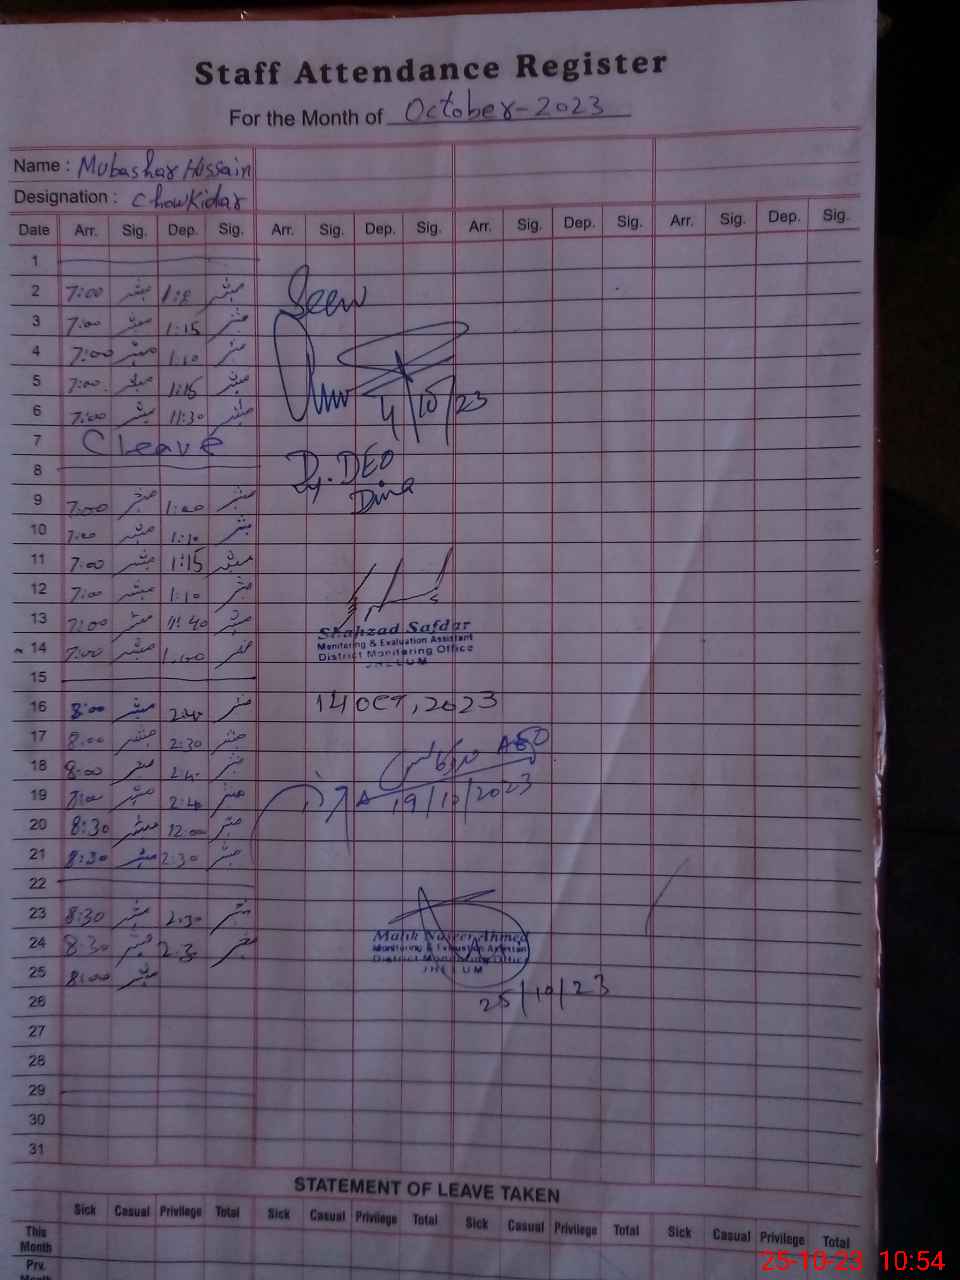 Staff Attendance Register
For the Month of October-2023
Name : Mubashar Hussain
Designation : Chowkidar
Date Arr. Sig. Dep. Sig. Arr. Sig. Dep. Sig. Arr. Sig. Dep. Sig. Arr. Sig. Dep. Sig.
1
2 7:00 مبشر مبشر
Seen
3 7:00 مبشر 1:15 مبشر
4 7:00 مبشر 1:10 مبشر
5 7:00 مبشر 1:15 مبشر
6 7:00 مبشر 11:30 مبشر
4/10/23
7 C leave
8
Dy. DEO
Dina
9 7:00 مبشر 1:00 مبشر
10 7:00 مبشر 1:10 مبشر
11 7:00 مبشر 1:15 مبشر
12 7:00 مبشر 1:10 مبشر
13 7:00 مبشر مبشر
Shahzad Safdar
Monitoring & Evaluation Assistant
District Monitoring Office
JHELUM
14 7:00 مبشر 1:00 مبشر
15
16 8:00 مبشر 2:40 مبشر
14 OCT, 2023
17 8:00 مبشر 2:30 مبشر
AEO
18 8:00 مبشر مبشر
19 مبشر 2:40 مبشر
19/10/2023
20 8:30 مبشر 12:00 مبشر
21 8:30 مبشر 2:30 مبشر
22
23 8:30 مبشر 2:30 مبشر
24 8:30 مبشر 2:3 مبشر
Malik Naseer Ahmed
Monitoring & Evaluation Assistant
District Monitoring Office
JHELUM
25 8:00 مبشر
25/10/23
26
27
28
29
30
31
STATEMENT OF LEAVE TAKEN
Sick Casual Privilege Total Sick Casual Privilege Total Sick Casual Privilege Total Sick Casual Privilege Total
This Month
Prv. Month
25-10-23 10:54